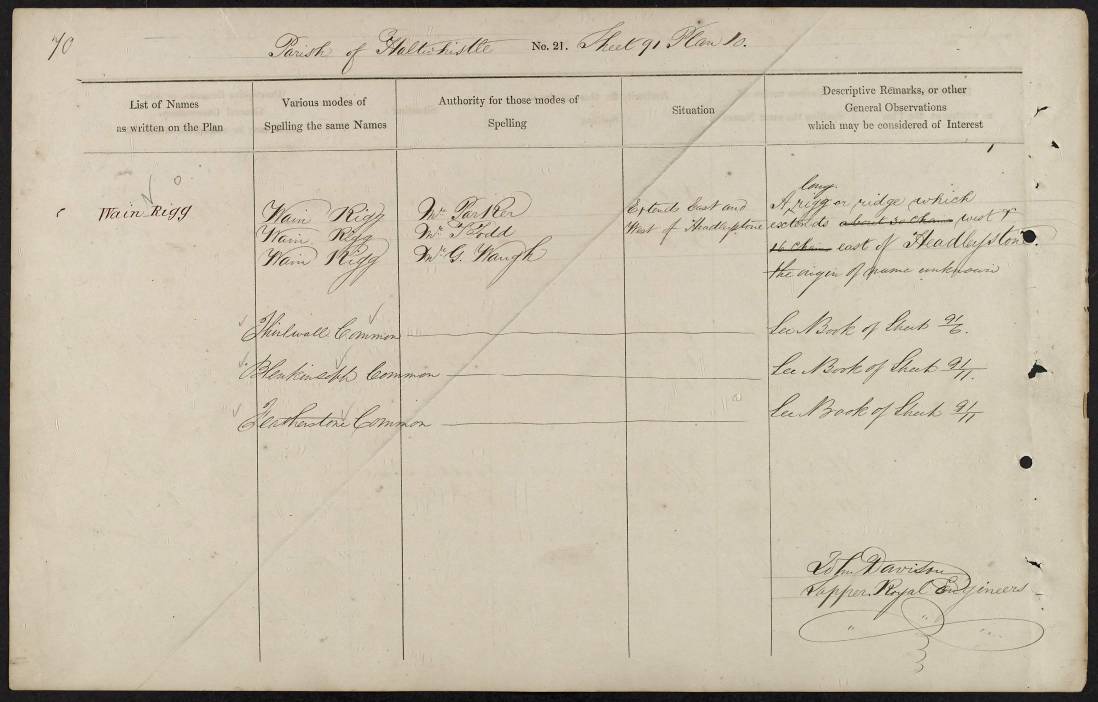 70
Parish of Haltwhistle No. 21. Sheet 91 Plan 10.
List of Names
as written on the Plan
Various modes of
Spelling the same Names
Authority for those modes of
Spelling
Situation
Descriptive Remarks, or other
General Observations
which may be considered of Interest
Wain Rigg
Wain Rigg
Wain Rigg
Wain Rigg
Mr. Parker
Mr. T. Todd
Mr. G. Waugh
Extends East and
West of Headleystone
long
A rigg or ridge which
extends about 30 chains west &
16 chains east of Headleystone.
the origin of name unknown
Thirlwall Common
See Book of Sheet 91/6.
Blenkinsoph Common
See Book of Sheet 91/11.
Featherstone Common
See Book of Sheet 91/11
John Davison
Sapper Royal Engineers